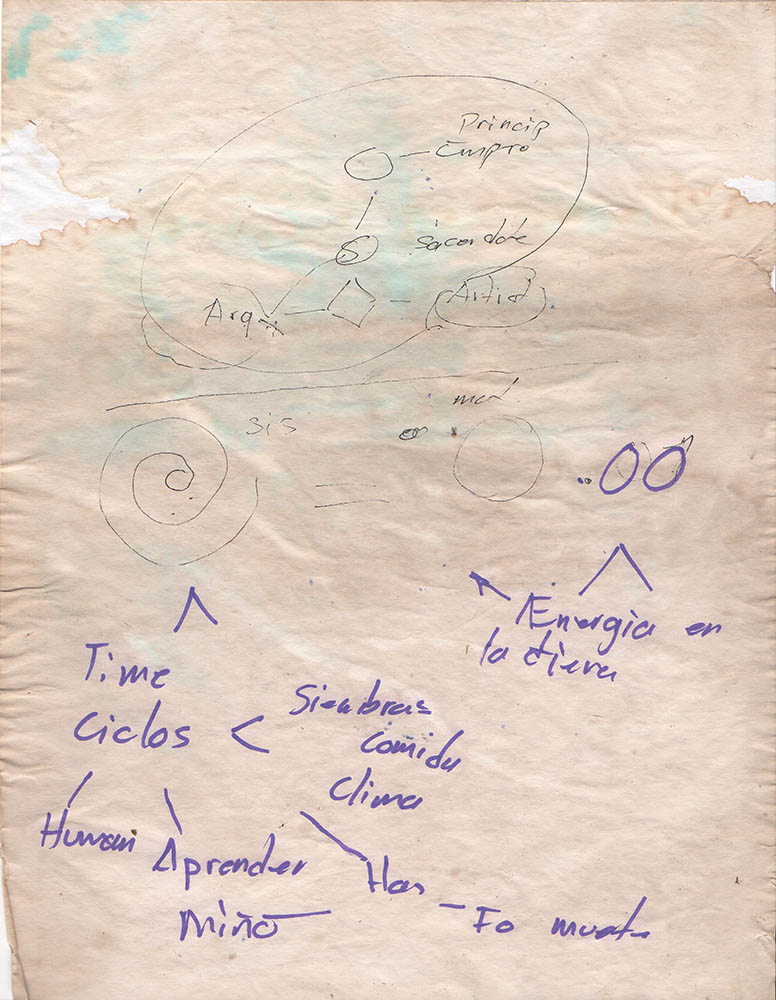 Princip
Empro
S Sacerdote
Arq
Artist
sis
Energia en
la tiera
Time
Ciclos
Siembras
Comida
Clima
Human
Aprender
Niño